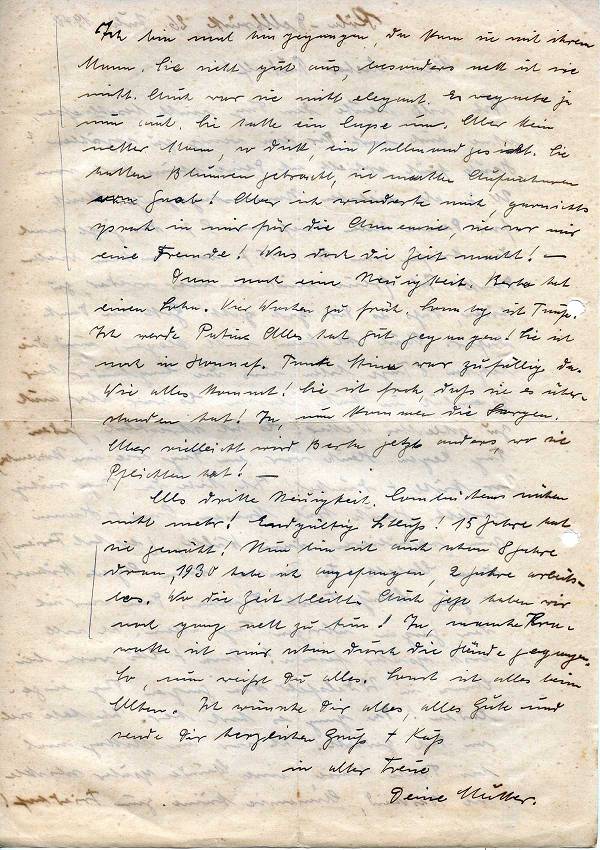 Ich bin mal hingegangen, da kam sie mit ihrem
Mann. Sie sieht gut aus, besonders nett ist sie
nicht. Auch war sie nicht elegant. Es regnete ja
nun auch. Sie hatte ein Cape um. Aber kein
netter Mann, so dick, ein Vollmondgesicht. Sie
hatten Blumen gebracht, sie machten Aufnahmen
vom Grab! Aber ich wunderte mich, garnichts
sprach in mir für die Annemie, sie war mir
eine Fremde! Was doch die Zeit macht! —
Dann noch eine Neuigkeit. Berta hat
einen Sohn. Vier Wochen zu früh. Sonntag ist Taufe.
Ich werde Patin. Alles hat gut gegangen! Sie ist
noch in Honnef. Tante war zufällig da.
Wie alles kommt! Sie ist froh, daß sie es über-
standen hat! Ja, nun kommen die Sorgen.
Aber vielleicht wird Berta jetzt anders, wo sie
Pflichten hat! —
Als dritte Neuigkeit. nähen
nicht mehr! Endgültig Schluß! 15 Jahre hat
sie genäht! Nun bin ich auch schon 8 Jahre
dran, 1930 habe ich angefangen, 2 Jahre arbeits-
los. Wo die Zeit bleibt. Auch jetzt haben wir
noch ganz nett zu tun! Ja, manche Kra-
watte ist mir schon durch die Hände gegangen.
So, nun weißt Du alles. Sonst ist alles beim
Alten. Ich wünsche Dir alles, alles Gute und
sende Dir herzlichen Gruß + Kuß
in alter Treue
Deine Mutter.